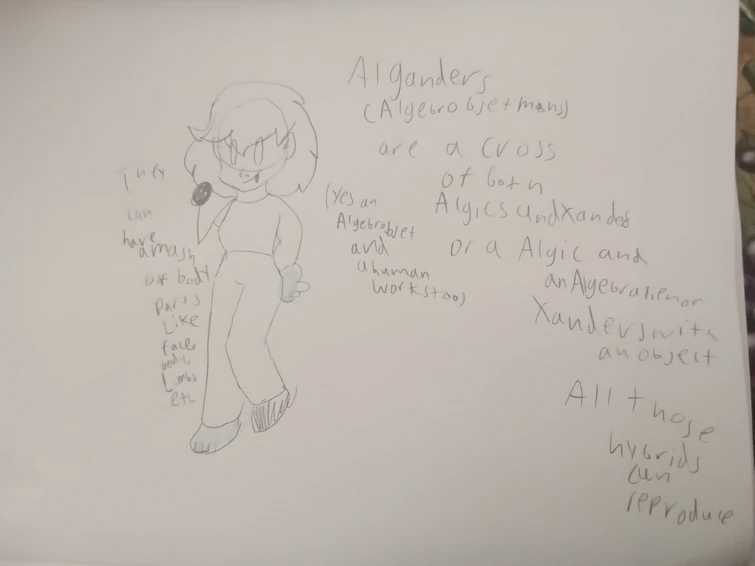 Alganders
(Algebrobjetmans)
are a cross
of both
Algics and Xanders
or a Algic and
an Algebralien or
Xanders with
an object
All those
hybrids
can
reproduce
(Yes an
Algebrobjet
and
a human
works too)
They
can
have
a mash
of body
parts
Like
face
body
Limbs
etc